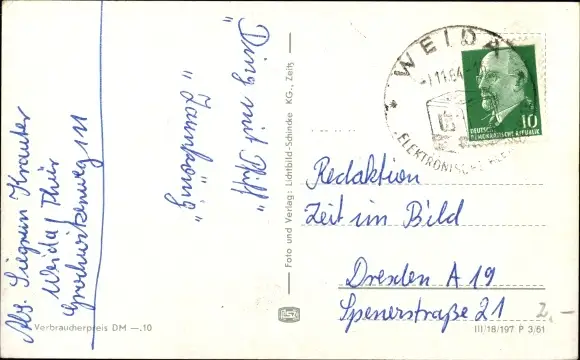 Abs. Siegrun Krauter
Weida/Thür
"Ding mit Pfiff"
"Zaunkönig"
Foto und Verlag: Lichtbild-Schincke KG., Zeitz
WEIDA
11.64
ELEKTRONISCHE
10
DEUTSCHE
DEMOKRATISCHE REPUBLIK
Redaktion
Zeit im Bild
Dresden A 19
Spenerstraße 21
2,-
Verbraucherpreis DM —.10
III/18/197 P 3/61